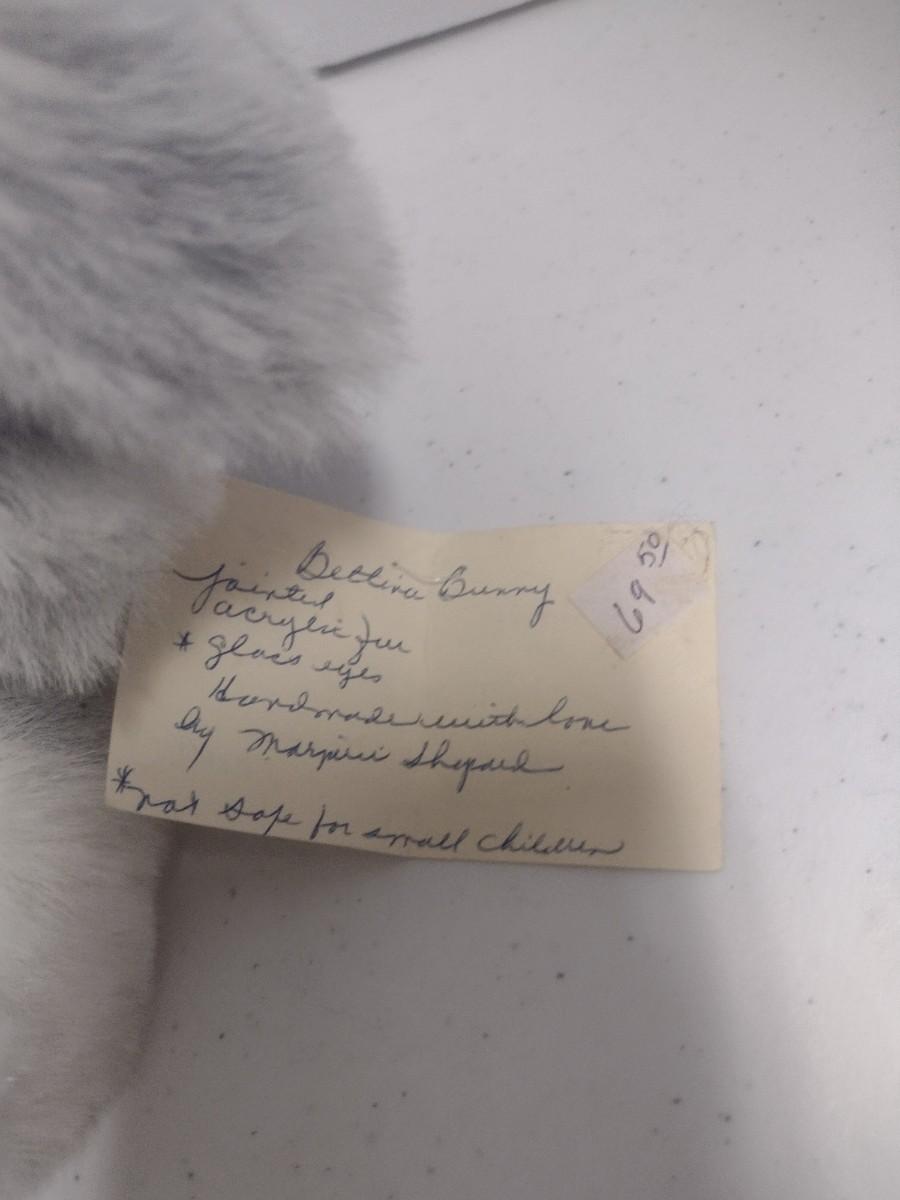 Bettina Bunny
jointed
acrylic fur
* glass eyes
Handmade with love
by Marjorie Shepard
*not safe for small children
69 50